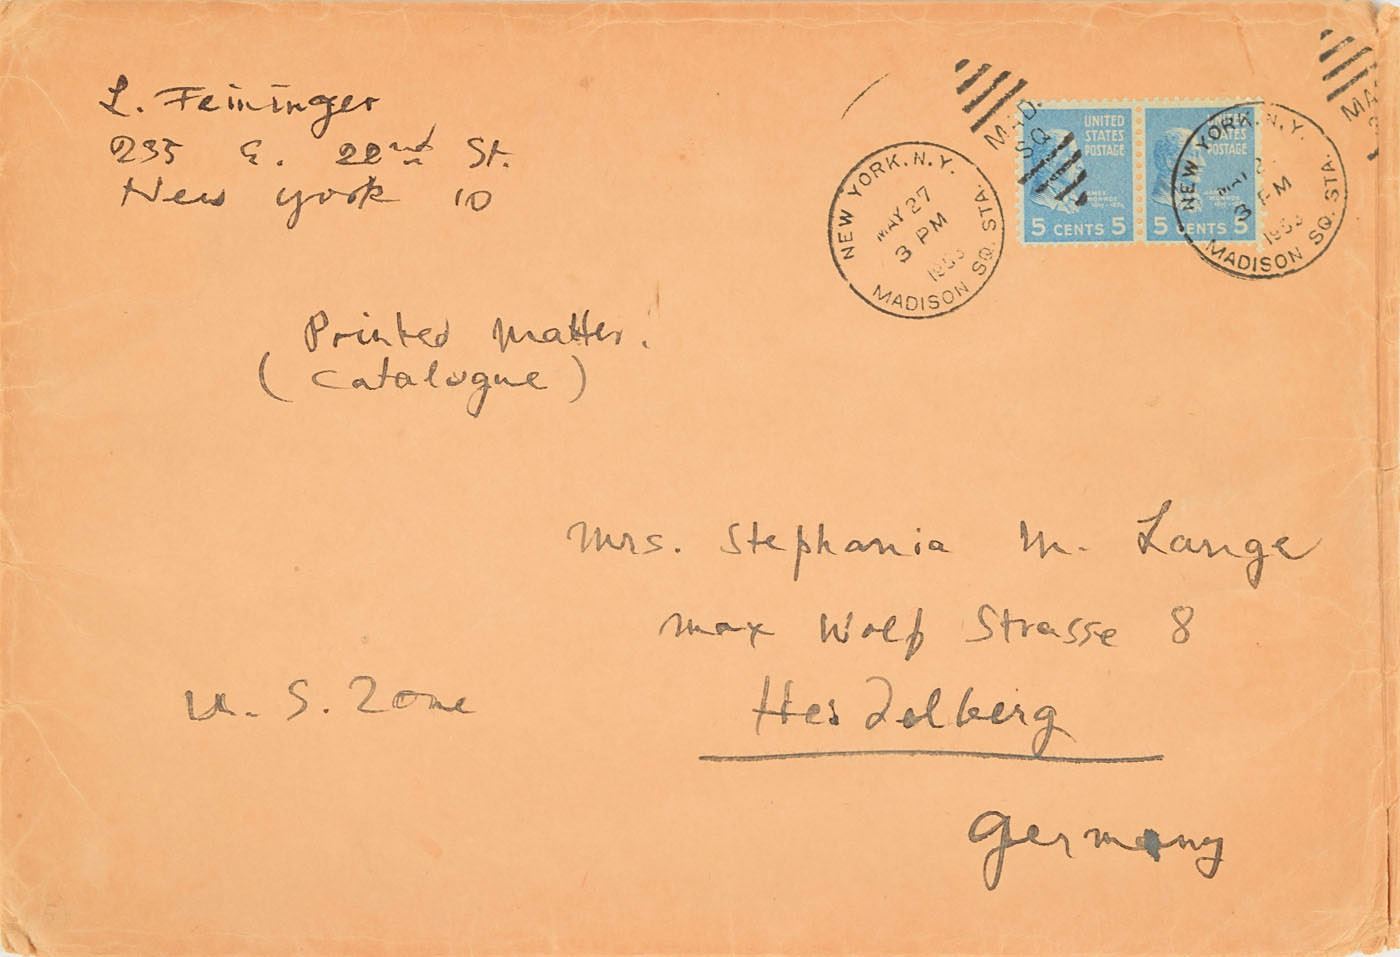 L. Feininger
235 E. 22nd St.
New York 10
Printed Matter.
(Catalogue)
Mrs. Stephania M. Lange
Max Wolf Strasse 8
U. S. Zone
Heidelberg
Germany
NEW YORK. N.Y.
MAY 27
3 PM
MADISON SQ. STA.
MAD.
SQ.
UNITED
STATES
POSTAGE
5 CENTS 5
UNITED
STATES
POSTAGE
JAMES
MONROE
5 CENTS 5
NEW YORK. N.Y.
MAY
3 PM
MADISON SQ. STA.